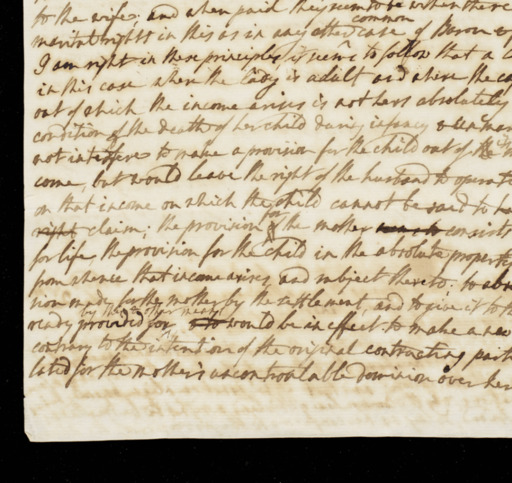 to the wife; and when paid they seem to be within the
common
marital rights in this as in any other case of Baron &
I am right in these principles it seems to follow that a
in this case where the lady is adult and where the
out of which the income arises is not hers absolutely
condition of the death of her child during infancy & unmar
not interfere to make a provision for the child out of the
come, but would leave the right of the husband to operate
on that income on which the child cannot be said to ha
right claim; the provision for the mother consist
for life the provision for the Child in the absolute propert
from whence that income arises, and subject thereto: to
sion made for the mother by the settlement, and to give it to
by the mother
ready provided for would be in effect to make a new
contrary to the intention of the original contracting part
lated for the mother's uncontroulable dominion over her